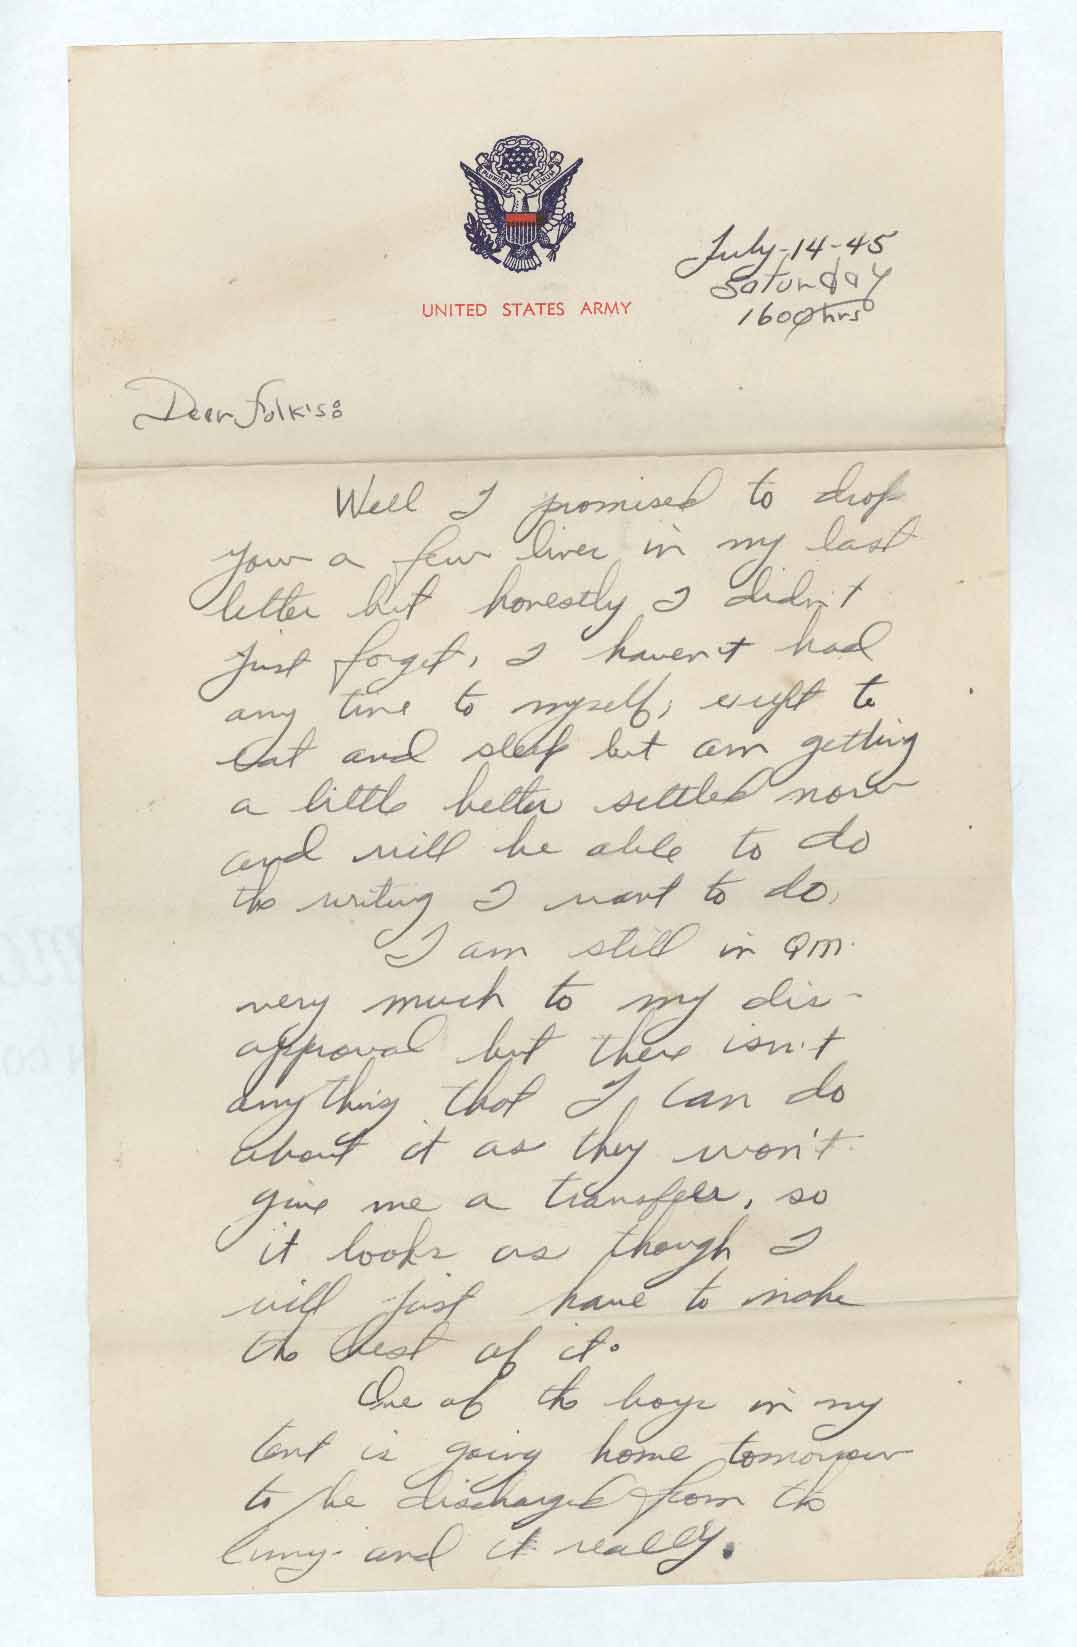 E PLURIBUS UNUM
UNITED STATES ARMY
July-14-45
Saturday
1600 hrs
Dear folk's:
Well I promised to drop
you a few lines in my last
letter but honestly I didn't
just forget, I haven't had
any time to myself, except to
eat and sleep but am getting
a little better settled now
and will be able to do
the writing I want to do.
I am still in QM.
very much to my dis-
approval but there isn't
anything that I can do
about it as they won't
give me a transfer, so
it looks as though I
will just have to make
the best of it.
One of the boys in my
tent is going home tomorrow
to be discharged from the
army and it really.